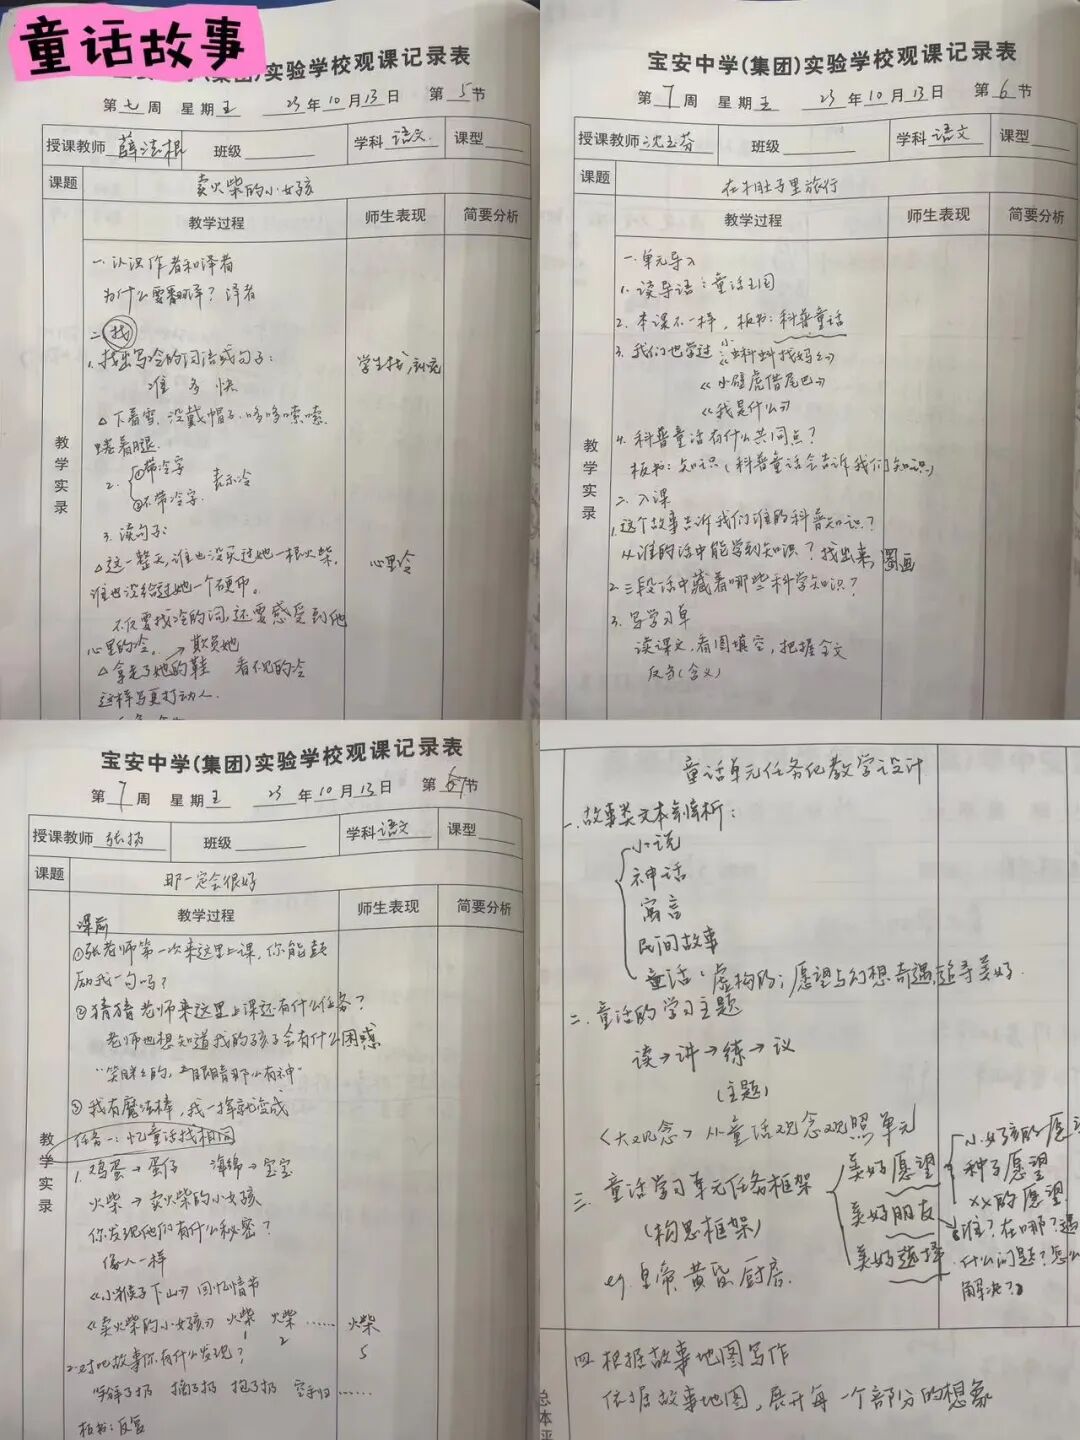 童话故事
宝安中学(集团)实验学校观课记录表
第七周 星期五 23年10月13日 第5节
授课教师 薛法根 班级 学科 语文 课型
课题 卖火柴的小女孩
教学过程 师生表现 简要分析
教学实录
一.认识作者和译者
为什么要翻译？译者
二.找
1.找出写冷的词语或句子：
准 多 快
学生找，补充
△下着雪，没戴帽子，哆哆嗦嗦，
蜷着腿.
2. ①带冷字
②不带冷字.
表示冷
3.读句子：
△这一整天，谁也没买过她一根火柴，
谁也没给过她一个硬币。
心里冷
不仅要找冷的词，还要感受到他
心里的冷。 → 欺负她
△拿走了她的鞋 看不见的冷
这样写更打动人.
宝安中学(集团)实验学校观课记录表
第7周 星期五 23年10月13日 第6节
授课教师 沈玉芬 班级 学科 语文 课型
课题 在牛肚子里旅行
教学过程 师生表现 简要分析
教学实录
一.单元导入
1.读导语：童话王国
2.本课不一样，板书：科普童话
3.我们也学过《小蝌蚪找妈妈》
《小壁虎借尾巴》
《我是什么》
4.科普童话有什么共同点？
板书：知识(科普童话会告诉我们知识)
二.入课
1.这个故事告诉我们谁的科普知识？
从谁的话中能学到知识？找出来，圈画
2.三段话中藏着哪些科学知识？
3.写学习单
读课文，看图填空，把握全文
反刍(含义)
宝安中学(集团)实验学校观课记录表
第7周 星期五 23年10月13日 第节
授课教师 张扬 班级 学科 语文 课型
课题 那一定会很好
教学过程 师生表现 简要分析
教学实录
课前
①张老师第一次来这里上课，你能鼓
励我一句吗？
②猜猜老师来这里上课还有什么任务？
老师也想知道我的孩子会有什么困惑
"笑眯眯的，眼睛那么有神"
③我有魔法棒，我一挥就变成
任务一：忆童话找相同
1.鸡蛋→蛋仔 海绵→宝宝
火柴→卖火柴的小女孩
你发现他们有什么秘密？
像人一样
《小猴子下山》回忆情节
《卖火柴的小女孩》火柴 火柴 …… 火柴
1 2 5
2.对比故事你有什么发现？
掰了扔 摘了扔 抱了扔 空手归……
板书：反复
童话单元任务化教学设计
一.故事类文本解析：
小说
神话
寓言
民间故事
童话：虚构的；愿望与幻想，奇遇，追寻美好.
二.童话的学习主题
读→讲→练→议
(主题)
<大观念>从童话观念观照单元
三.童话学习单元任务框架
(构思框架)
美好愿望
美好朋友
美好选择
小女孩的愿
种子愿望
xx的愿望
谁？在哪？遇
什么问题？怎么
解决？
eg.皇帝 黄昏 厨房.
四.根据故事地图写作
依据故事地图，展开每一个部分的想象